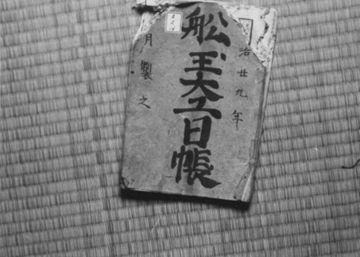 治廿九年
船玉大工日帳
月製之